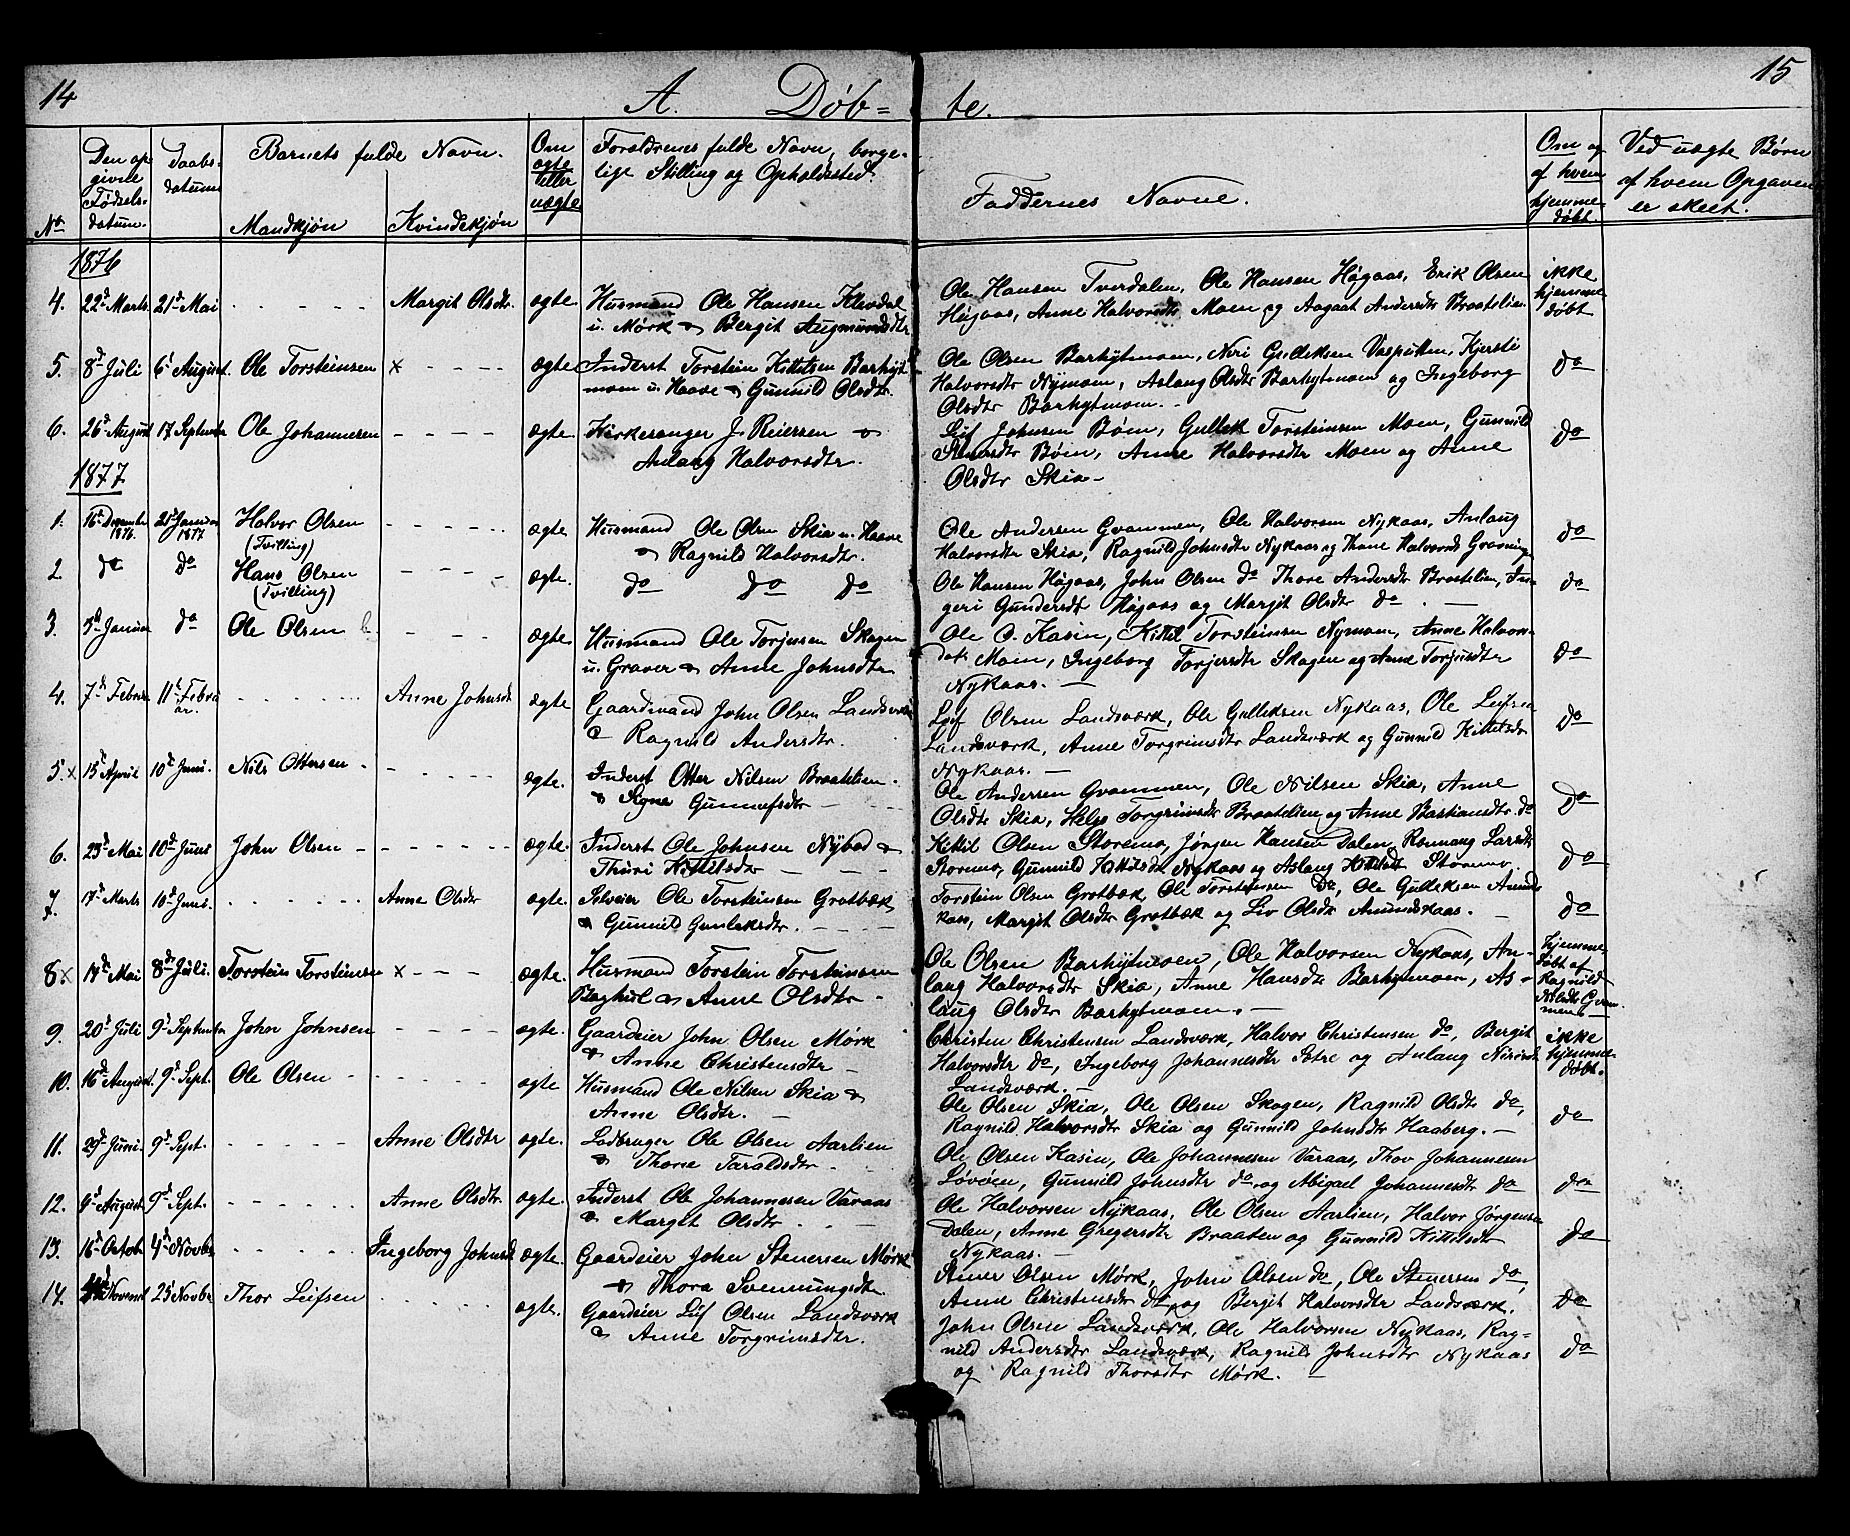 14
15
A. Døb-
te.
No
Den opgivne Fødselsdatum.
Daabsdatum
Barnets fulde Navn.
Mandkjøn
Kvindekjøn
Om ægte eller uægte
Forældrenes fulde Navn, borgelige Stilling og Opholdssted.
Faddernes Navne.
Om og af hvem hjemmedøbt
Ved uægte Børn af hvem Opgaven er skeet.
1876
4. 22d Marts 21d Mai - - - - - Margit Olsdtr. ægte. Husmand Ole Hansen Klevdal
u. Mørk & Bergit Augmundsdtr
Ole Hansen Tverdalen, Ole Hansen Høgaas, Erik Olsen
Høgaas, Anne Halvorsdtr Moen og Aagaat Andersdtr Braatelien
ikke
hjemme-
døbt
5. 8d Juli 6d August Ole Torsteinsen x - - - - ægte Inderst Torstein Kittelsen Barhyt-
moen u. Haave & Gunnild Olsdtr.
Ole Olsen Barhytmoen, Neri Gulleksen Vasputten, Kjersti
Halvorsdtr Nymoen, Aslaug Olsdtr Barhytmoen og Ingeborg
Olsdtr Barhytmoen. -
do
6. 26d August 17 September Ole Johannesen - - - - ægte. Kirkesanger J. Reiersen &
Anlaug Halvorsdtr.
Leif Johnsen Bøen, Gullek Torsteinsen Moen, Gunnild
Stenersdtr Bøen, Anne Halvorsdtr Moen og Anne
Olsdtr Skia -
do
1877
1. 16d December 1876. 21d Januar 1877 Halvor Olsen
(Tvilling)
- - - - - ægte Husmand Ole Olsen Skia u. Haave
& Ragnild Halvorsdtr.
Ole Andersen Gvammen, Ole Halvorsen Nykaas, Anlaug
Halvorsdtr Skia, Ragnild Johnsdtr Nykaas og Thone Halvorsdtr
do
2 do do Hans Olsen
(Tvilling)
- - - - ægte. do do do
Ole Hansen Høgaas, John Olsen do Thore Andersdtr Braatelien, In-
geri Gundersdtr Høgaas og Margit Olsdtr do. -
do
3. 5d Januar do Ole Olsen - - - ægte. Husmand Ole Torjusen Skogen
u. Graver & Anne Johnsdtr
Ole O. Kasin, Kittil Torsteinsen Nymoen, Anne Halvors-
dtr Moen, Ingeborg Torjersdtr Skogen og Anne Torjusdtr
Nykaas. -
do
4. 7d Februar 11d Febru
ar.
- - - - - Anne Johnsdtr ægte. Gaardmand John Olsen Landsværk
& Ragnild Andersdtr.
Leif Olsen Landsværk, Ole Gulleksen Nykaas, Ole Leifsen
Landsværk, Anne Torgrimsdtr Landsværk og Gunnild Kittelsdtr
Nykaas. -
do
5 x 15d April 10d Juni. Nils Ottersen - - - - - ægte. Inderst Otter Nilsen Braatelien.
& Signe Gunnufsdtr -
Ole Andersen Gvammen, Ole Nilsen Skia, Anne
Olsdtr Skia, Helge Torgrimsdtr Braatelien og Anne Bastiansdtr do
do
6. 23d Mai 10d Juni John Olsen - - - - - - ægte. Inderst Ole Johnsen Nybod &
Thuri Kittelsdtr - - -
Kittil Olsen Storemo, Jørgen Hansen Dalen, Rønnaug Larsdtr
Storemo, Gunnild Kittilsdtr Nykaas og Aslaug Kittilsdtr Storemo
do
7. 17d Marts 10d Juni. - - - - - - Anne Olsdtr ægte. Selveier Ole Torsteinsen Grotbæk
& Gunnild Gunleksdtr. - - - -
Torstein Olsen Grotbæk, Ole Torsteinsen do, Ole Gulleksen Amunds
kaas, Margit Olsdtr Grotbæk og Liv Olsdtr Amundskaas. -
do
8 x 18d Mai 8d Juli. Torstein Torsteinsen x - - - ægte. Husmand Torstein Torsteinsen
Baghul & Anne Olsdtr -
Ole Olsen Barhytmoen, Ole Halvorsen Nykaas, An-
laug Halvorsdtr Skia, Anne Hansdtr Barhytmoen, As-
laug Olsdtr Barhytmoen. -
hjemme-
døbt af
Ragnild
Nilsdtr Gvam-
men
9. 20d Juli 9d September John Johnsen - - - - ægte. Gaardeier John Olsen Mørk
& Anne Christensdtr -
Christen Christensen Landsværk, Halvor Christensen do, Bergit
Halvorsdtr do, Ingeborg Johannesdtr Setre og Anlaug
Landsværk. -
ikke
hjemme-
døbt.
10. 16d August. 9d Sept. Ole Olsen - - - - - - ægte Husmand Ole Nilsen Skia &
Anne Olsdtr. -
Ole Olsen Skia, Ole Olsen Skogen, Ragnild Olsdtr do,
Ragnild Halvorsdtr Skia og Gunnild Johnsdtr Haaberg. -
do
11. 29d Juni. 9d Sept. - - - - - Anne Olsdtr ægte. Ladbruger Ole Olsen Aarlien
& Thone Taraldsdtr -
Ole Olsen Kasin, Ole Johannesen Varaas, Thov Johannesen
Løvøen, Gunnild Johnsdtr do og Abigael Johannesdtr do
do
12. 9d August 9d Sept. - - - - - Anne Olsdtr ægte. Inderst Ole Johannesen Varaas
& Margit Olsdtr - - -
Ole Halvorsen Nykaas, Ole Olsen Aarlien, Halvor Jørgensen
Dalen, Anne Gregersdtr Braaten og Gunnild Kittelsdtr
Nykaas. -
do
13. 16d Octob. 4d Novbr - - - - - Ingeborg Johnsd ægte. Gaardeier John Stenersen Mørk
& Thora Svennungsdtr
Stener Olsen Mørk, John Olsen do, Ole Stenersen do,
Anne Christensdtr do og Bergit Halvorsdtr Landsværk.
do
14. Novemb 25d Novbr Thor Leifsen - - - - - - ægte. Gaardeier Leif Olsen Landsværk
& Anne Torgrimsdtr.
John Olsen Landsværk, Ole Halvorsen Nykaas, Rag-
nild Andersdtr Landsværk, Ragnild Johnsdtr Nykaas
og Ragnild Thorsdtr Mørk. -
do